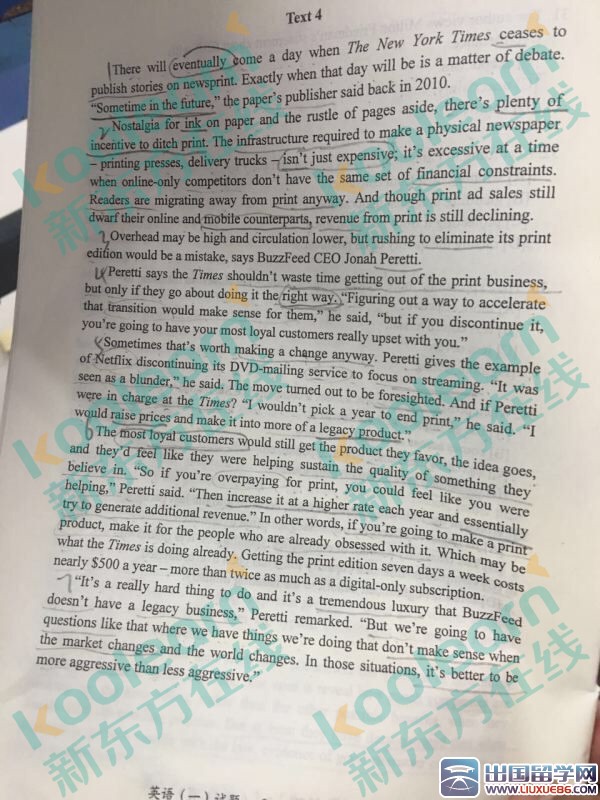 Text 4
There will eventually come a day when The New York Times ceases to
publish stories on newsprint. Exactly when that day will be is a matter of debate.
“Sometime in the future,” the paper's publisher said back in 2010.
Nostalgia for ink on paper and the rustle of pages aside, there's plenty of
incentive to ditch print. The infrastructure required to make a physical newspaper
– printing presses, delivery trucks – isn't just expensive; it's excessive at a time
when online-only competitors don't have the same set of financial constraints.
Readers are migrating away from print anyway. And though print ad sales still
dwarf their online and mobile counterparts, revenue from print is still declining.
Overhead may be high and circulation lower, but rushing to eliminate its print
edition would be a mistake, says BuzzFeed CEO Jonah Peretti.
Peretti says the Times shouldn't waste time getting out of the print business,
but only if they go about doing it the right way. “Figuring out a way to accelerate
that transition would make sense for them,” he said, “but if you discontinue it,
you're going to have your most loyal customers really upset with you.”
Sometimes that's worth making a change anyway. Peretti gives the example
of Netflix discontinuing its DVD-mailing service to focus on streaming. “It was
seen as a blunder,” he said. The move turned out to be foresighted. And if Peretti
were in charge at the Times? “I wouldn't pick a year to end print,” he said. “I
would raise prices and make it into more of a legacy product.”
The most loyal customers would still get the product they favor, the idea goes,
and they'd feel like they were helping sustain the quality of something they
believe in. “So if you're overpaying for print, you could feel like you were
helping,” Peretti said. “Then increase it at a higher rate each year and essentially
try to generate additional revenue.” In other words, if you're going to make a print
product, make it for the people who are already obsessed with it. Which may be
what the Times is doing already. Getting the print edition seven days a week costs
nearly $500 a year – more than twice as much as a digital-only subscription.
“It's a really hard thing to do and it's a tremendous luxury that BuzzFeed
doesn't have a legacy business,” Peretti remarked. “But we're going to have
questions like that where we have things we're doing that don't make sense when
the market changes and the world changes. In those situations, it's better to be
more aggressive than less aggressive.”
英语（一）试题
koolearn
新东方在线
koolearn
新东方在线
koolearn
新东方在线
koolearn
新东方在线
出国留学网
WWW.LIUXUE86.COM